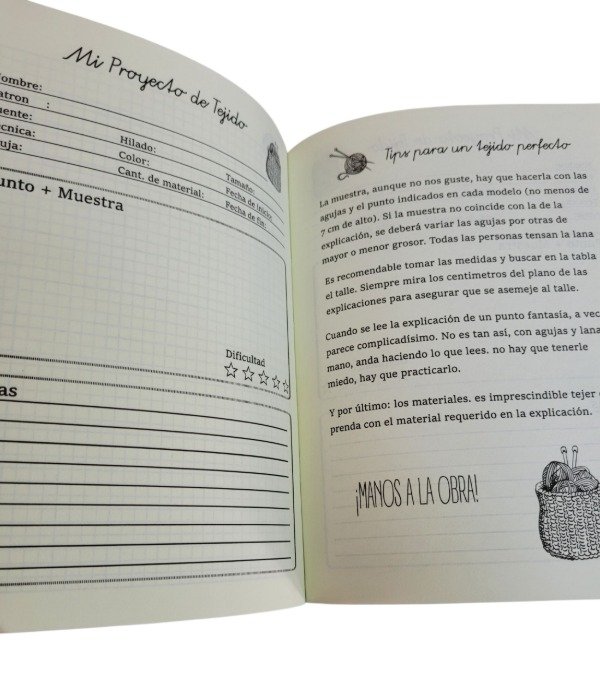 Mi Proyecto de Tejido
ombre:
atron :
uente:
cnica:
uja:
Hilado:
Color:
Cant. de material:
Tamaño:
Fecha de inicio
Fecha de fin:
unto + Muestra
Dificultad
as
Tips para un tejido perfecto
La muestra, aunque no nos guste, hay que hacerla con las
agujas y el punto indicados en cada modelo (no menos de
7 cm de alto). Si la muestra no coincide con la de la
explicación, se deberá variar las agujas por otras de
mayor o menor grosor. Todas las personas tensan la lana
Es recomendable tomar las medidas y buscar en la tabla
el talle. Siempre mira los centimetros del plano de las
explicaciones para asegurar que se asemeje al talle.
Cuando se lee la explicación de un punto fantasía, a vec
parece complicadísimo. No es tan así, con agujas y lana
mano, anda haciendo lo que lees. no hay que tenerle
miedo, hay que practicarlo.
Y por último: los materiales. es imprescindible tejer
prenda con el material requerido en la explicación.
¡MANOS A LA OBRA!